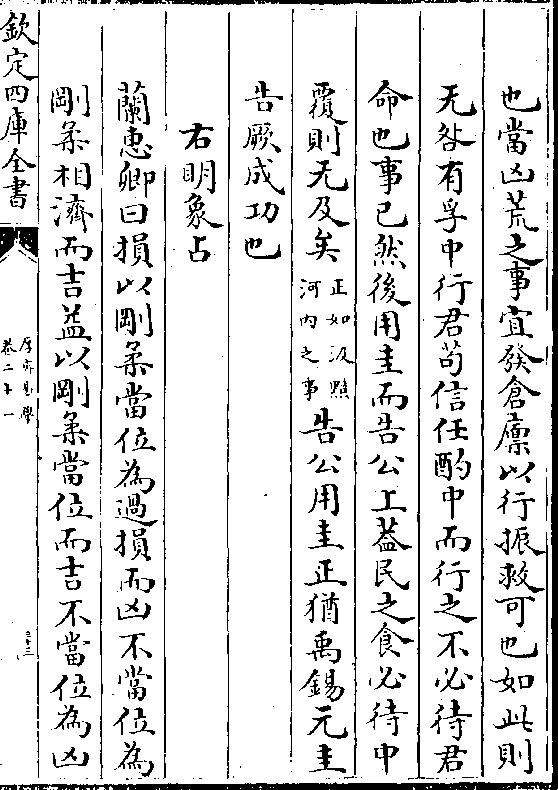 也當凶荒之事宜發倉廩以行振救可也如此則
无咎有孚中行君苟信任酌中而行之不必待君
命也事已然後用圭而告公上葢民之食必待申
覆則无及矣正如汲黯河内之事告公用圭正猶禹錫元圭
告厥成功也
右明象占
蘭惠卿曰損以剛柔當位為過損而凶不當位為
剛柔相濟而吉益以剛柔當位而吉不當位為凶
欽定四庫全書
厚齋易學
卷二十一